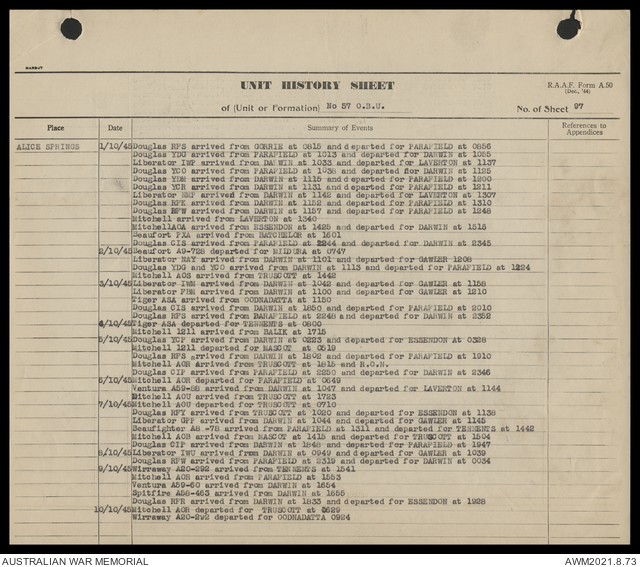 UNIT HISTORY SHEET
R.A.A.F. Form A.50
(Dec., '44)
of (Unit or Formation) No 57 O.B.U.
No. of Sheet 97
Place Date Summary of Events References to Appendices
ALICE SPRINGS 1/10/45 Douglas RFS arrived from GORRIE at 0815 and departed for PARAFIELD at 0856
Douglas YDG arrived from PARAFIELD at 1013 and departed for DARWIN at 1055
Liberator IWP arrived from DARWIN at 1033 and departed for LAVERTON at 1137
Douglas YCO arrived from PARAFIELD at 1038 and departed for DARWIN at 1125
Douglas YDM arrived from DARWIN at 1115 and departed for DARWIN at 1200
Douglas YCR arrived from DARWIN at 1131 and departed for PARAFIELD at 1211
Liberator NMP arrived from DARWIN at 1142 and departed for LAVERTON at 1307
Douglas RFK arrived from DARWIN at 1152 and departed for PARAFIELD at 1310
Douglas RFW arrived from DARWIN at 1157 and departed for PARAFIELD at 1248
Mitchell arrived from LAVERTON at 1340
Mitchell AOA arrived from ESSENDON at 1425 and departed for DARWIN at 1515
Beaufort PXA arrived from BATCHELOR at 1601
Douglas CIS arrived from PARAFIELD at 2244 and departed for DARWIN at 2345
2/10/45 Beaufort A9-728 departed for MILDURA at 0747
Liberator NAY arrived from DARWIN at 1101 and departed for GAWLER 1208
Douglas YDG and YCO arrived from DARWIN at 1113 and departed for PARAFIELD at 1224
Mitchell AOS arrived from TRUSCOTT at 1442
3/10/45 Liberator IWN arrived from DARWIN at 1042 and departed for GAWLER at 1158
Liberator FBN arrived from DARWIN at 1100 and departed for GAWLER at 1210
Tiger ASA arrived from OODNADATTA at 1150
Douglas CIS arrived from DARWIN at 1850 and departed for PARAFIELD at 2010
Douglas RFS arrived from PARAFIELD at 2248 and departed for DARWIN at 2352
4/10/45 Tiger ASA departed for TENNENTS at 0800
Mitchell 1211 arrived from BALIK at 1715
5/10/45 Douglas YCP arrived from DARWIN at 0223 and departed for ESSENDON at 0328
Mitchell 1211 departed for MASCOT at 0519
Douglas RFS arrived from DARWIN at 1802 and departed for PARAFIELD at 1910
Mitchell AOR arrived from TRUSCOTT at 1815 and R.O.N.
Douglas CIP arrived from PARAFIELD at 2250 and departed for DARWIN at 2346
6/10/45 Mitchell AOR departed for PARAFIELD at 0649
Ventura A59-88 arrived from DARWIN at 1047 and departed for LAVERTON at 1144
Mitchell AOU arrived from TRUSCOTT at 1723
7/10/45 Mitchell AOU departed for TRUSCOTT at 0710
Douglas RFY arrived from TRUSCOTT at 1020 and departed for ESSENDON at 1138
Liberator GPP arrived from DARWIN at 1044 and departed for GAWLER at 1145
Beaufighter A8 -78 arrived from PARAFIELD at 1311 and departed for TENNENTS at 1442
Mitchell AOB arrived from MASCOT at 1415 and departed for TRUSCOTT at 1504
Douglas CIP arrived from DARWIN at 1848 and departed for PARAFIELD at 1947
8/10/45 Liberator IWU arrived from DARWIN at 0949 and departed for GAWLER at 1039
Douglas RFW arrived from PARAFIELD at 2319 and departed for DARWIN at 0034
9/10/45 Wirraway A20-292 arrived from TENNENTS at 1541
Mitchell AOR arrived from PARAFIELD at 1553
Ventura A59-60 arrived from DARWIN at 1654
Spitfire A58-463 arrived from DARWIN at 1655
Douglas RFR arrived from DARWIN at 1833 and departed for ESSENDON at 1928
10/10/45 Mitchell AOR departed for TRUSCOTT at 0629
Wirraway A20-292 departed for OODNADATTA 0924
AUSTRALIAN WAR MEMORIAL
AWM2021.8.73